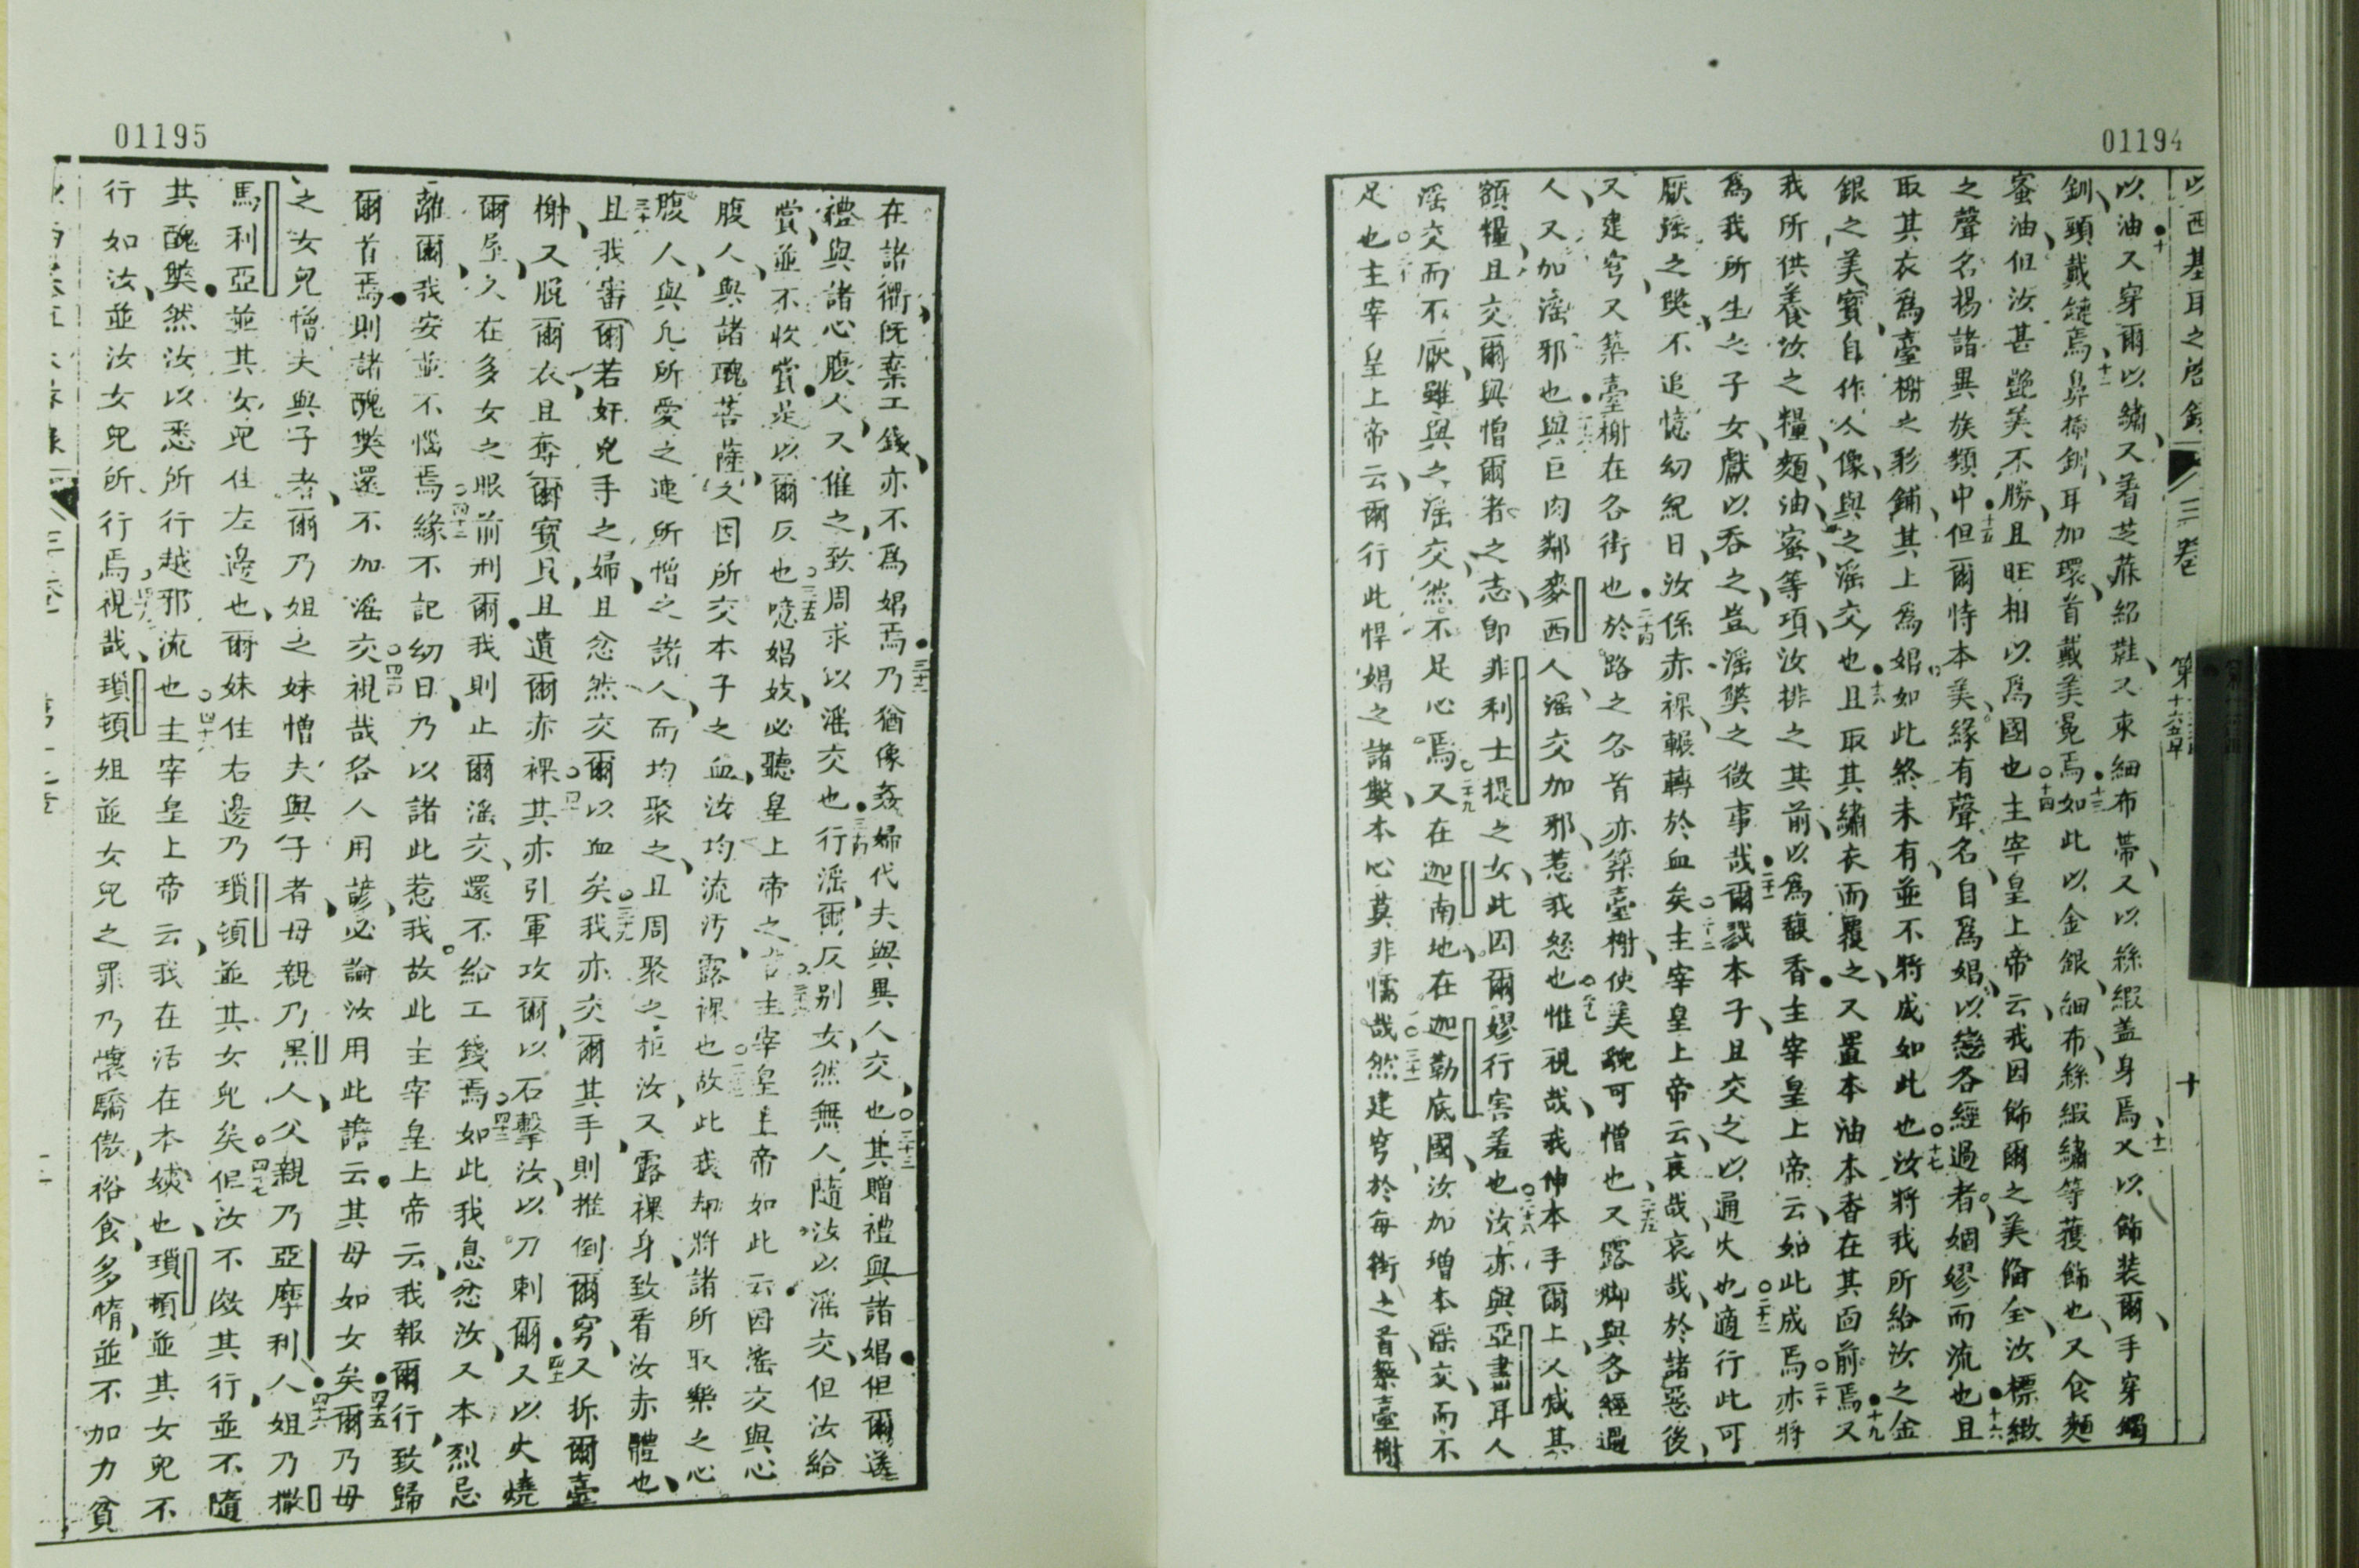 01194
以西基耳之啓錄 三卷 第十六章 十
以油又穿爾以繡又着芝蔴紹鞋又束細布帶又以絲緞蓋身焉又以飾裝爾手穿鐲
釧頭戴鏈焉鼻掛釧耳加環首戴美冕焉如此以金銀細布絲緞繡等獲飾也又食麵
蜜油但汝甚艷美不勝且旺相以爲國也主宰皇上帝云我因飾爾之美俻全汝標緻
之聲名揚諸異族類中但爾恃本美緣有聲名自爲娼以戀各經過者婟嫪而流也且
取其衣爲臺榭之彩鋪其上爲娼如此終未有並不將成如此也汝將我所給汝之金
銀之美寶自作人像與之滛交也且取其繡衣而覆之又置本油本香在其面前焉又
我所供養汝之糧麵油蜜等項汝排之其前以爲馥香主宰皇上帝云如此成焉亦將
爲我所生之子女獻以吞之豈滛獘之微事哉爾戮本子且交之以通火也適行此可
厭滛之獘不追憶幼紀日汝係赤裸輾轉於血矣主宰皇上帝云哀哉哀哉於諸惡後
又建穹又築臺榭在各街也於路之各首亦築臺榭使美貌可憎也又露脚與各經過
人又加滛邪也與巨肉鄰麥西人滛交加邪惹我怒也惟視哉我伸本手爾上又減其
額糧且交爾與憎爾者之志卽非利士提之女此因爾嫪行害羞也汝亦與亞書耳人
滛交而不厭雖與之滛交然不足心焉又在迦南地在迦勒底國汝加增本滛交而不
足也主宰皇上帝云爾行此悍娼之諸獘本心莫非懦哉然建穹於每街之首築臺榭
01195
在諸衢旣棄工錢亦不爲娼焉乃猶像姦婦代夫與異人交也其贈禮與諸娼但爾送
禮與諸心腹人又催之致周求以滛交也行滛爾反別女然無人隨汝以滛交但汝給
賞並不收賞是以爾反也噫娼妓必聽皇上帝之言主宰皇上帝如此云因滛交與心
腹人與諸醜菩薩又因所交本子之血汝均流汚露裸也故此我却將諸所取樂之心
腹人與凡所愛之連所憎之諸人而均聚之且周聚之柜汝又露裸身致看汝赤體也
且我審爾若奸兇手之婦且忿然交爾以血矣我亦交爾其手則推倒爾穹又拆爾臺
榭又脫爾衣且奪爾寶貝且遺爾亦裸其亦引軍攻爾以石擊汝以刀刺爾又以火燒
爾屋又在多女之眼前刑爾我則止爾滛交還不給工錢焉如此我息忿汝又本烈忌
離爾我安並不惱焉緣不記幼日乃以諸此惹我故此主宰皇上帝云我報爾行致歸
爾首焉則諸醜獘還不加滛交視哉各人用諺必論汝用此諺云其母如女矣爾乃母
之女兒憎夫與子者爾乃姐之妹憎夫與子者母親乃黑人父親乃亞摩利人姐乃撒
馬利亞並其女兒住左邊也爾妹住右邊乃瑣頓並其女兒矣但汝不倣其行並不隨
其醜獘然汝以悉所行越邪流也主宰皇上帝云我在活在本㛐也瑣頓並其女兒不
行如汝並汝女兒所行焉視哉瑣頓姐並女兒之罪乃懷驕傲裕食多惰並不加力貧